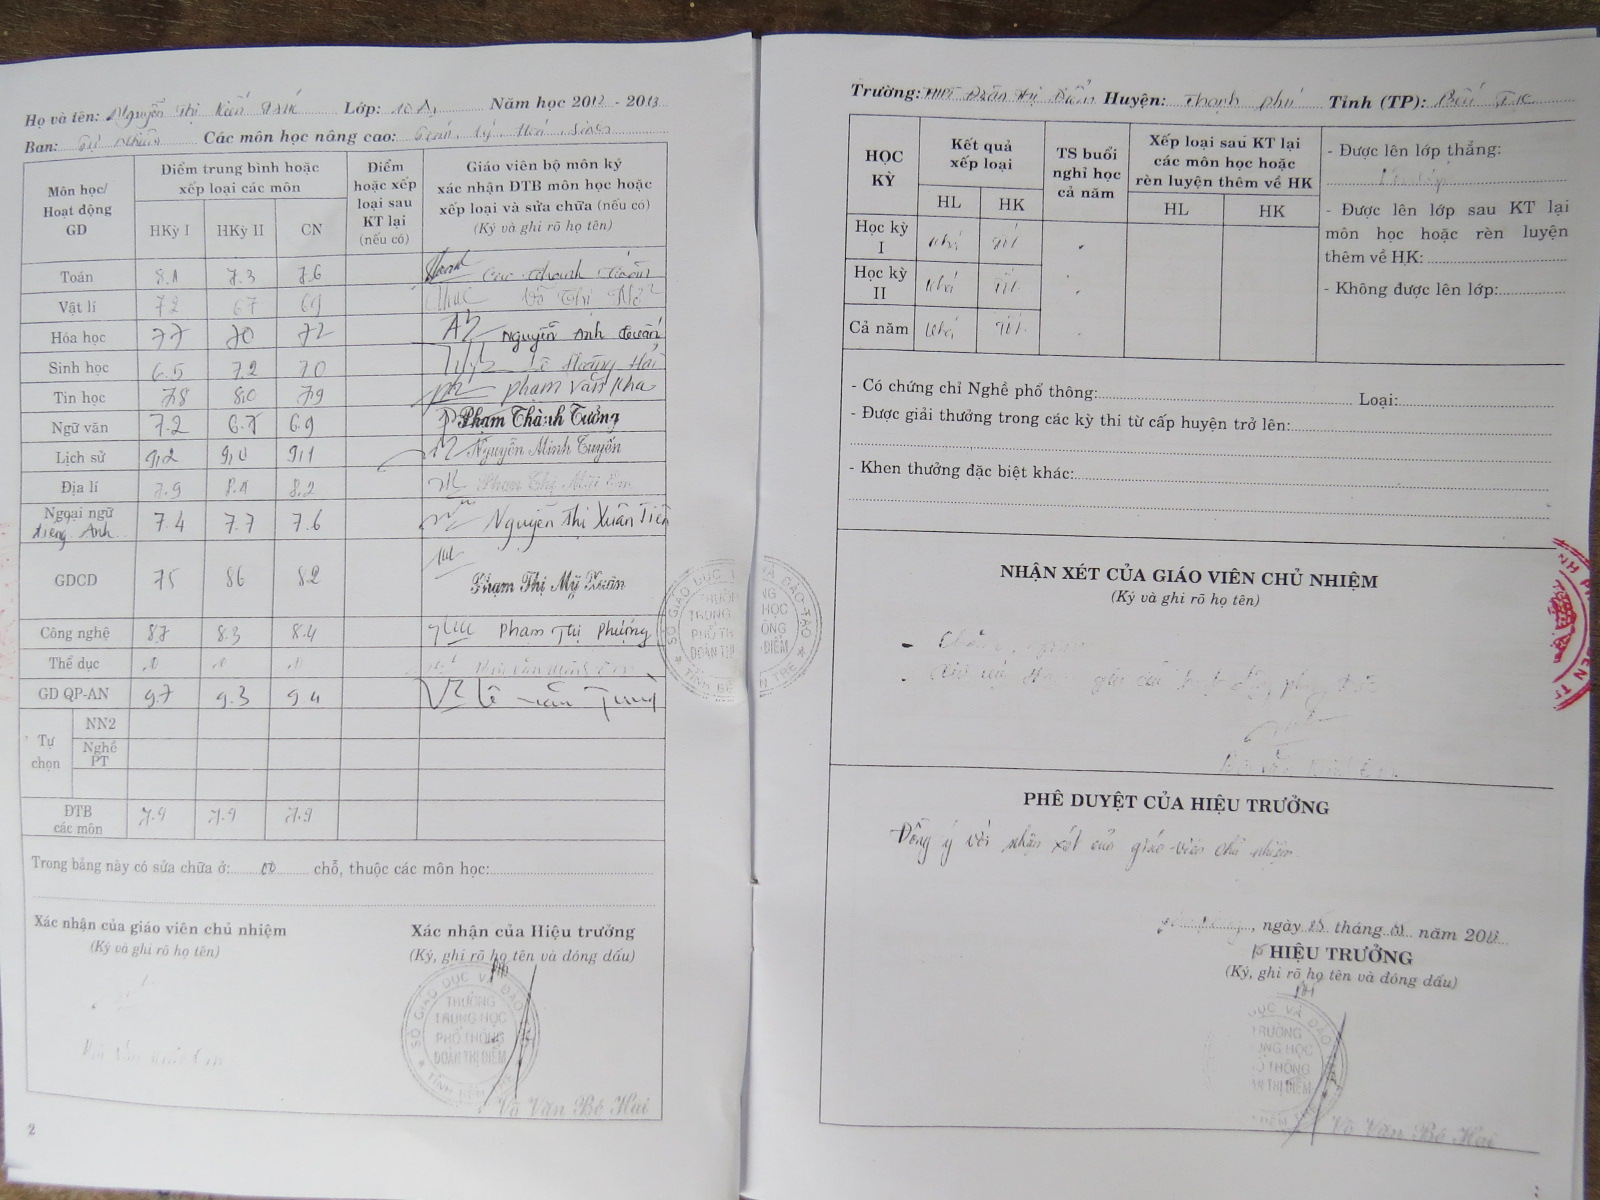 Họ và tên: Nguyễn Thị Lớp: 10A1 Năm học 2012 - 2013
Ban: Tự nhiên Các môn học nâng cao: Toán, Lý, Hoá, Sinh
Môn học/ Hoạt động GD
Điểm trung bình hoặc xếp loại các môn
HKỳ I HKỳ II CN
Điểm hoặc xếp loại sau KT lại (nếu có)
Giáo viên bộ môn ký xác nhận ĐTB môn học hoặc xếp loại và sửa chữa (nếu có)
(Ký và ghi rõ họ tên)
Toán 8.1 7.3 7.6 Cao Thanh
Vật lí 7.2 6.7 6.9 Võ Thị
Hóa học 7.7 7.0 7.2 Nguyễn Anh
Sinh học 6.5 7.2 7.0 Lê Hoàng Hải
Tin học 7.8 8.0 7.9 Phạm Văn Kha
Ngữ văn 7.2 6.7 6.9 Phạm Thành Tưởng
Lịch sử 9.2 9.0 9.1 Nguyễn Minh Tuyến
Địa lí 7.9 8.4 8.2 Phạm Thị
Ngoại ngữ tiếng Anh 7.4 7.7 7.6 Nguyễn Thị Xuân Tiên
GDCD 7.5 8.6 8.2 Phạm Thị Mỹ Xuân
Công nghệ 8.7 8.3 8.4 Phạm Thị Phượng
Thể dục
GD QP-AN 9.7 9.3 9.4 Lê
Tự chọn
NN2
Nghề PT
ĐTB các môn 7.9 7.9 7.9
Trong bảng này có sửa chữa ở: 00 chỗ, thuộc các môn học:
Xác nhận của giáo viên chủ nhiệm
(Ký và ghi rõ họ tên)
Xác nhận của Hiệu trưởng
(Ký, ghi rõ họ tên và đóng dấu)
SỞ GIÁO DỤC VÀ ĐÀO TẠO
TRƯỜNG
TRUNG HỌC
PHỔ THÔNG
ĐOÀN THỊ ĐIỂM
TỈNH BẾN TRE
Võ Văn Bé Hai
2
Trường: THPT Đoàn Thị Điểm Huyện: Thạnh Phú Tỉnh (TP): Bến Tre
HỌC KỲ
Kết quả xếp loại
HL HK
TS buổi nghỉ học cả năm
Xếp loại sau KT lại các môn học hoặc rèn luyện thêm về HK
HL HK
Học kỳ I Khá Tốt
Học kỳ II Khá Tốt
Cả năm Khá Tốt
- Được lên lớp thẳng:
Lên lớp
- Được lên lớp sau KT lại môn học hoặc rèn luyện thêm về HK:
- Không được lên lớp:
- Có chứng chỉ Nghề phổ thông: Loại:
- Được giải thưởng trong các kỳ thi từ cấp huyện trở lên:
- Khen thưởng đặc biệt khác:
SỞ GIÁO DỤC VÀ ĐÀO TẠO
TRƯỜNG
TRUNG HỌC
PHỔ THÔNG
ĐOÀN THỊ ĐIỂM
TỈNH BẾN TRE
NHẬN XÉT CỦA GIÁO VIÊN CHỦ NHIỆM
(Ký và ghi rõ họ tên)
PHÊ DUYỆT CỦA HIỆU TRƯỞNG
Đồng ý với nhận xét của giáo viên chủ nhiệm
, ngày 25 tháng 05 năm 2013
HIỆU TRƯỞNG
(Ký, ghi rõ họ tên và đóng dấu)
DỤC VÀ ĐÀO
TRƯỜNG
UNG HỌC
THÔNG
ÀN THỊ ĐIỂM
Võ Văn Bé Hai